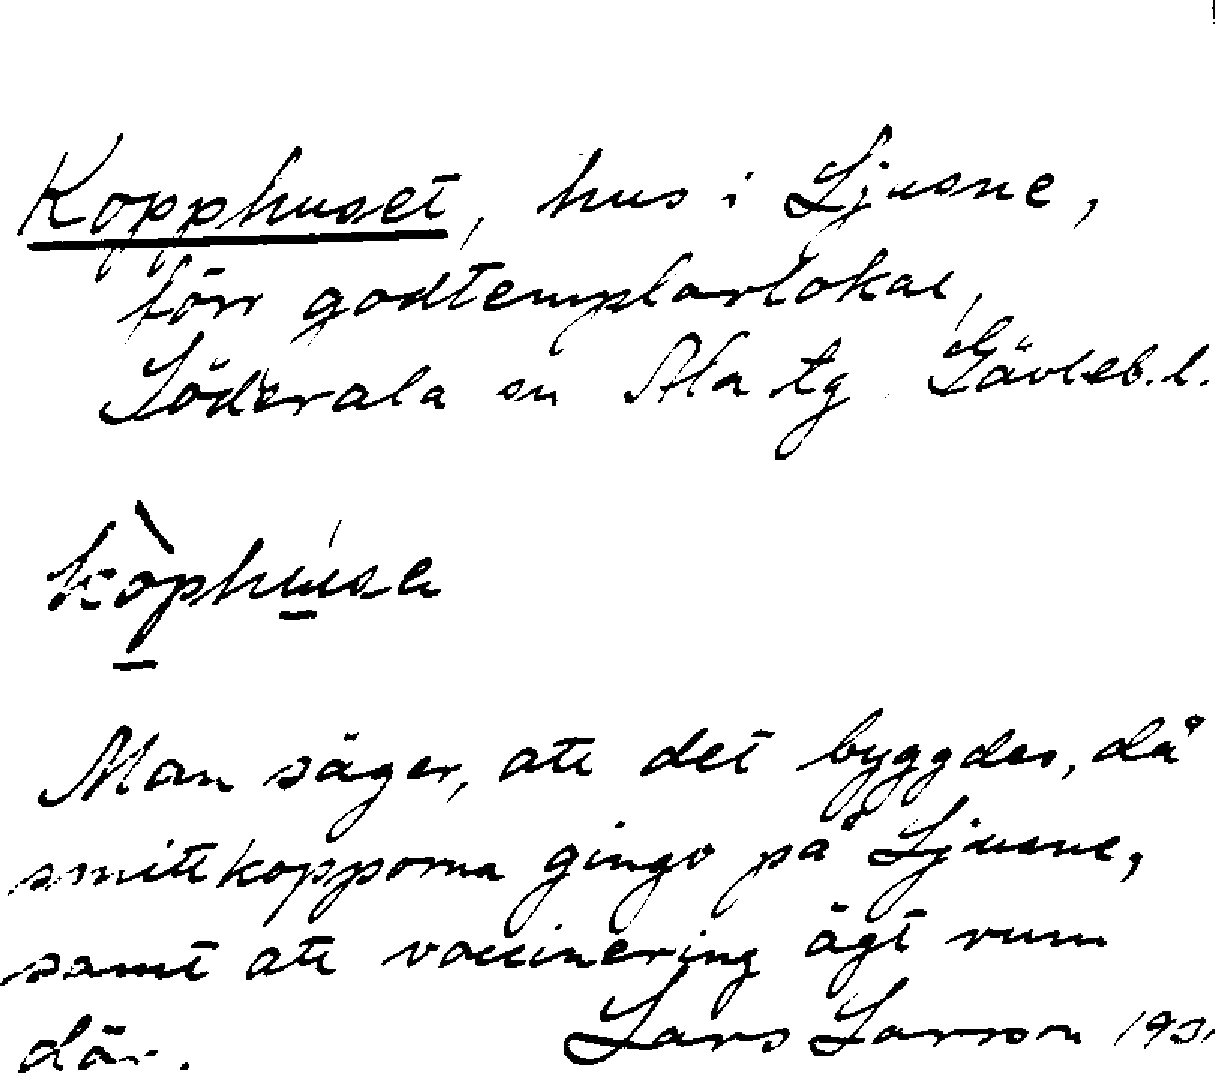 Kopphuset, hus i Ljusne,
förr godtemplarlokal,
Söderala sn Ala tg Gävleb.l.
kòphúsa
Man säger, att det byggdes, då
smittkopporna gingo på Ljusne,
samt att vaccinering ägt rum
där. Lars Larsson